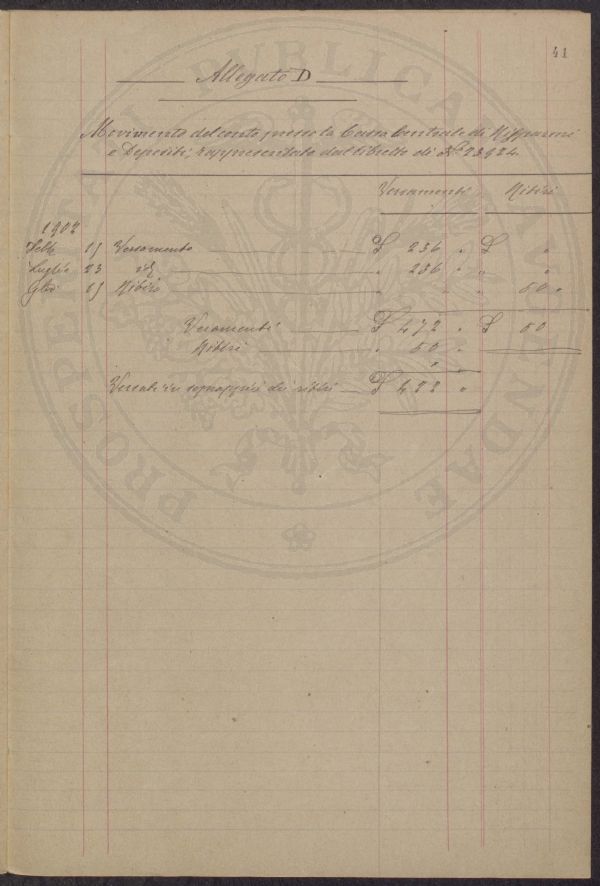 41
Allegato D
Movimento del conto presso la Cassa Centrale di Risparmi
e Depositi, rappresentato dal libretto di N.° 23924
Versamenti Ritiri
1902
15 Versamento £ 236 " £ "
Luglio 23 id. " 236 " " "
15 Ritiro " " " 50 "
Versamenti £ 472 " £ 50
Ritiri " 50 "
Versate in più dei ritiri £ 422 "
PROSPERITATI PUBLICAE AUGENDAE